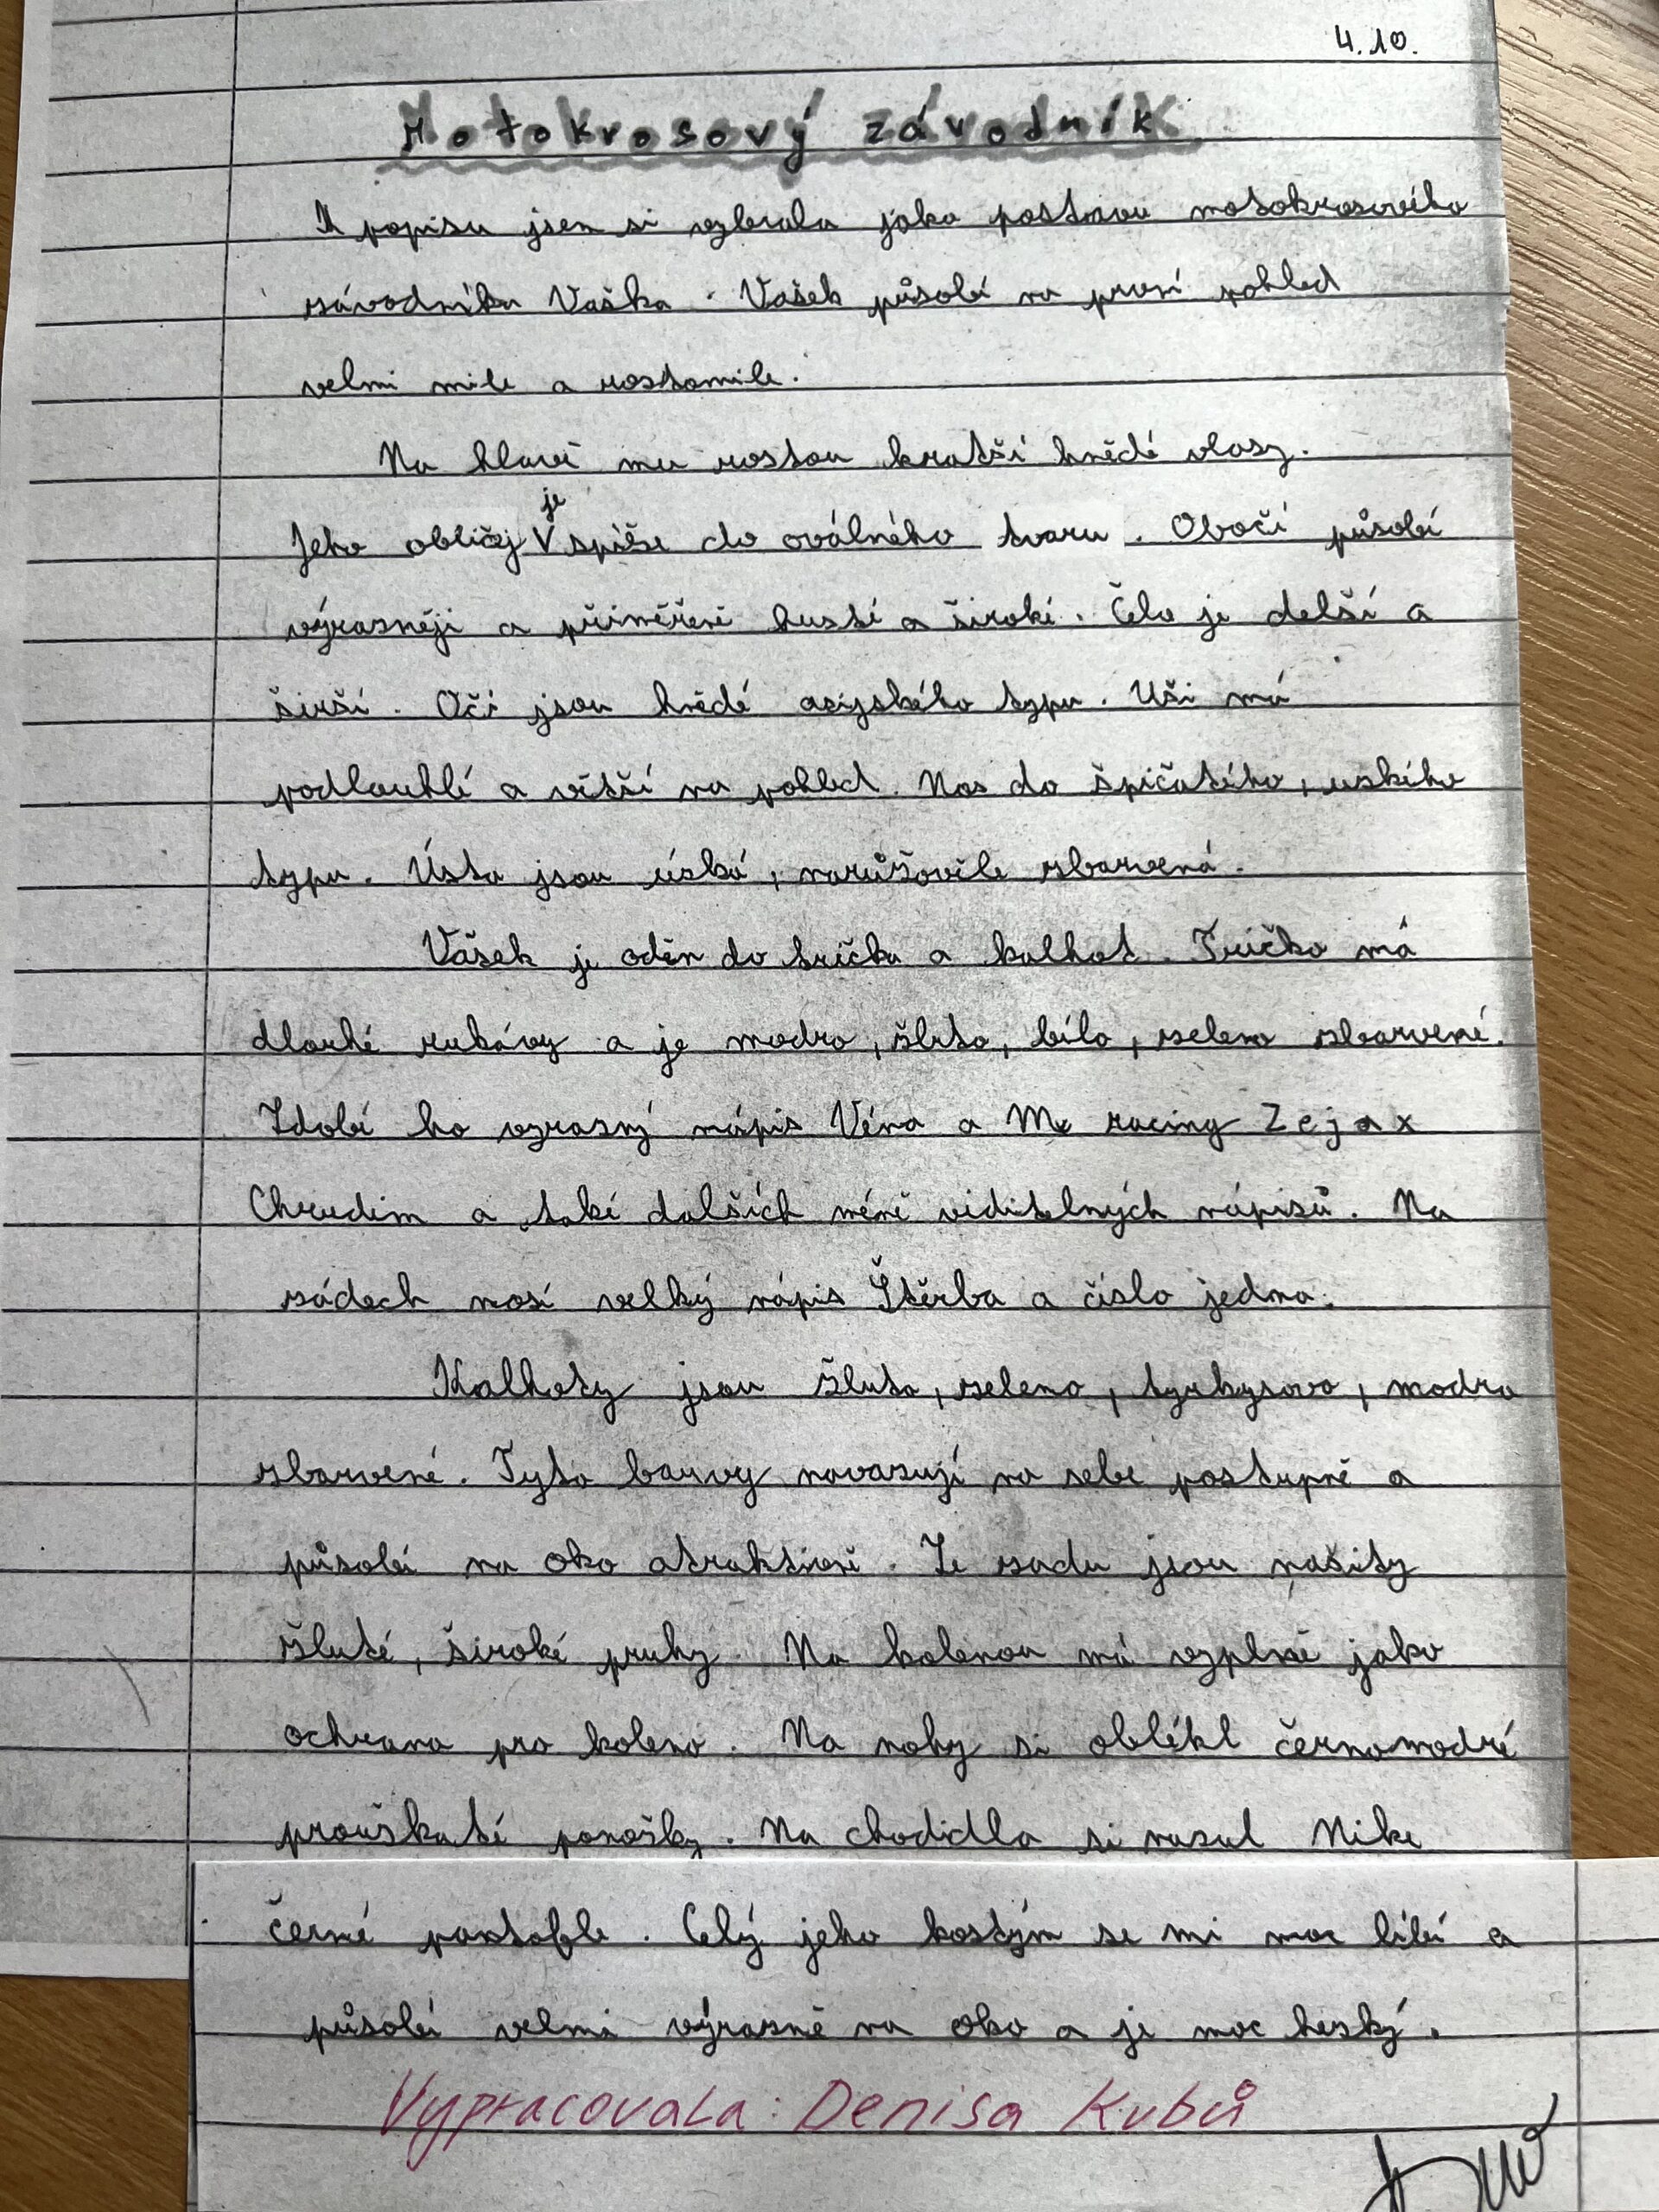 4.10.
Motokrosový závodník
K popisu jsem si vybrala jako postavu motokrosového
závodníka Vaška. Vašek působí na první pohled
velmi mile a roztomile.
Na hlavě mu rostou kratší hnědé vlasy.
je
Jeho obličej V spíše do oválného tvaru. Obočí působí
výrazněji a přiměřeně husté a široké. Čelo je delší a
širší. Oči jsou hnědé asijského typu. Uši má
podlouhlé a větší na pohled. Nos do špičatého, uzkého
typu. Ústa jsou úzká, narůžověle zbarvená.
Vašek je oděn do trička a kalhot. Tričko má
dlouhé rukávy a je modro, žluto, bílo, zeleno zbarvené.
Zdobí ho vyrazný nápis Véna a Mx racing Zejax
Chrudim a také dalších méně viditelných nápisů. Na
zádech nosí velký nápis Štěrba a číslo jedna.
Kalhoty jsou žluto, zeleno, tyrkysovo, modro
zbarvené. Tyto barvy navazují na sebe postupně a
působí na oko atraktivně. Ze zadu jsou našity
žluté, široké pruhy. Na kolenou má vyplně jako
ochrana pro koleno. Na nohy si oblékl černomodré
proužkaté ponožky. Na chodidla si nazul Nike
černé pantofle. Celý jeho kostým se mi moc líbí a
působí velmi výrazně na oko a je moc hezký.
Vypracovala: Denisa Kubů